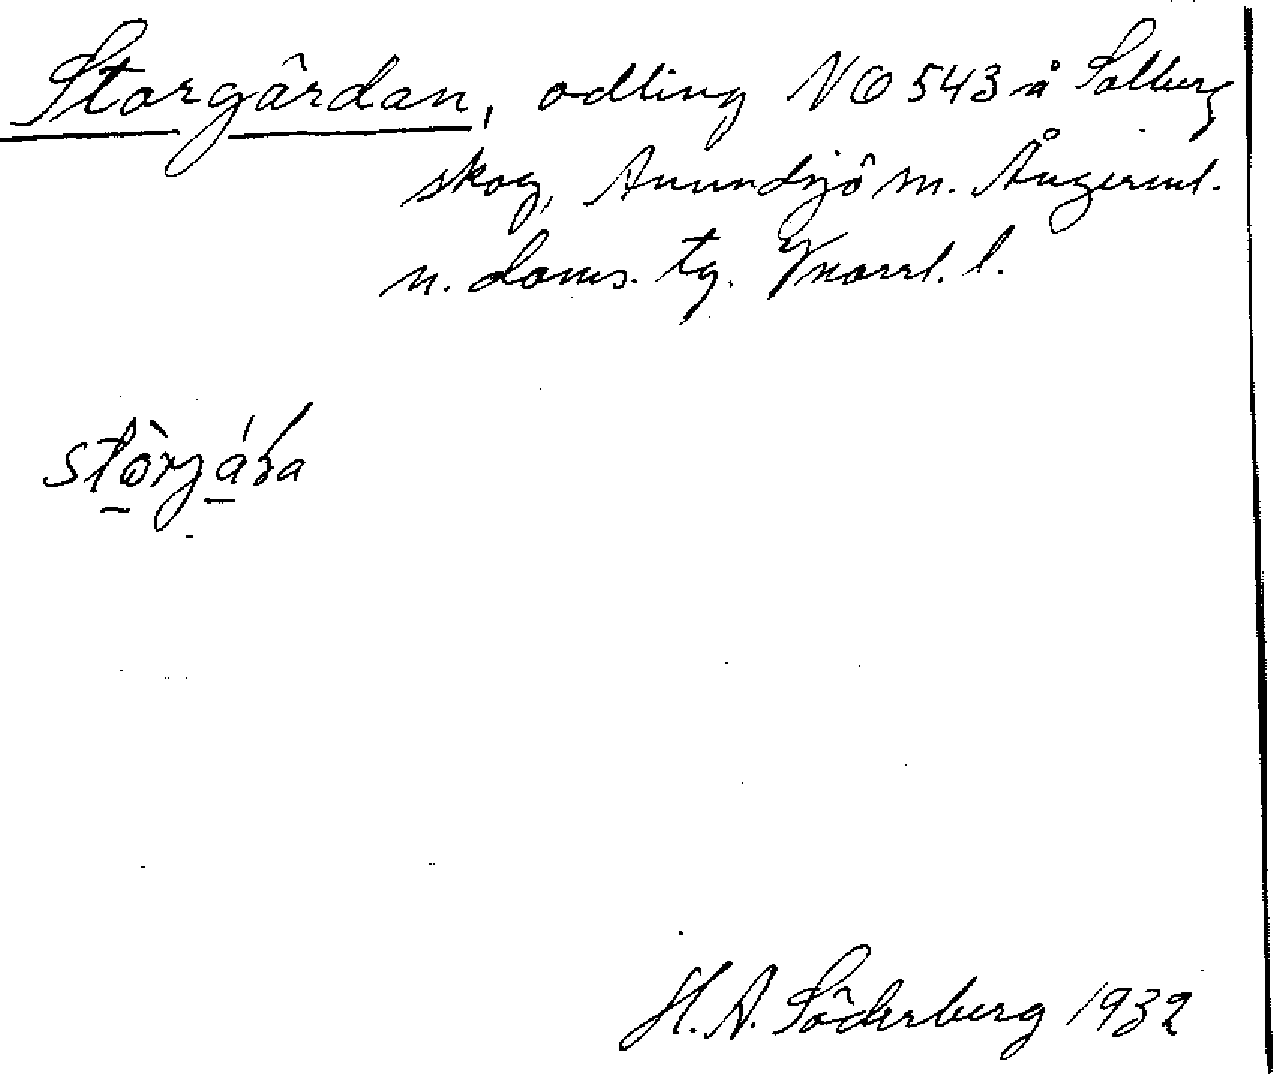 Storgårdan, odling NO 543 å Solberg
skog, Anundsjö sn. Ångerml.
n. doms. tg. Vnorrl. l.
H. A. Söderberg 1932